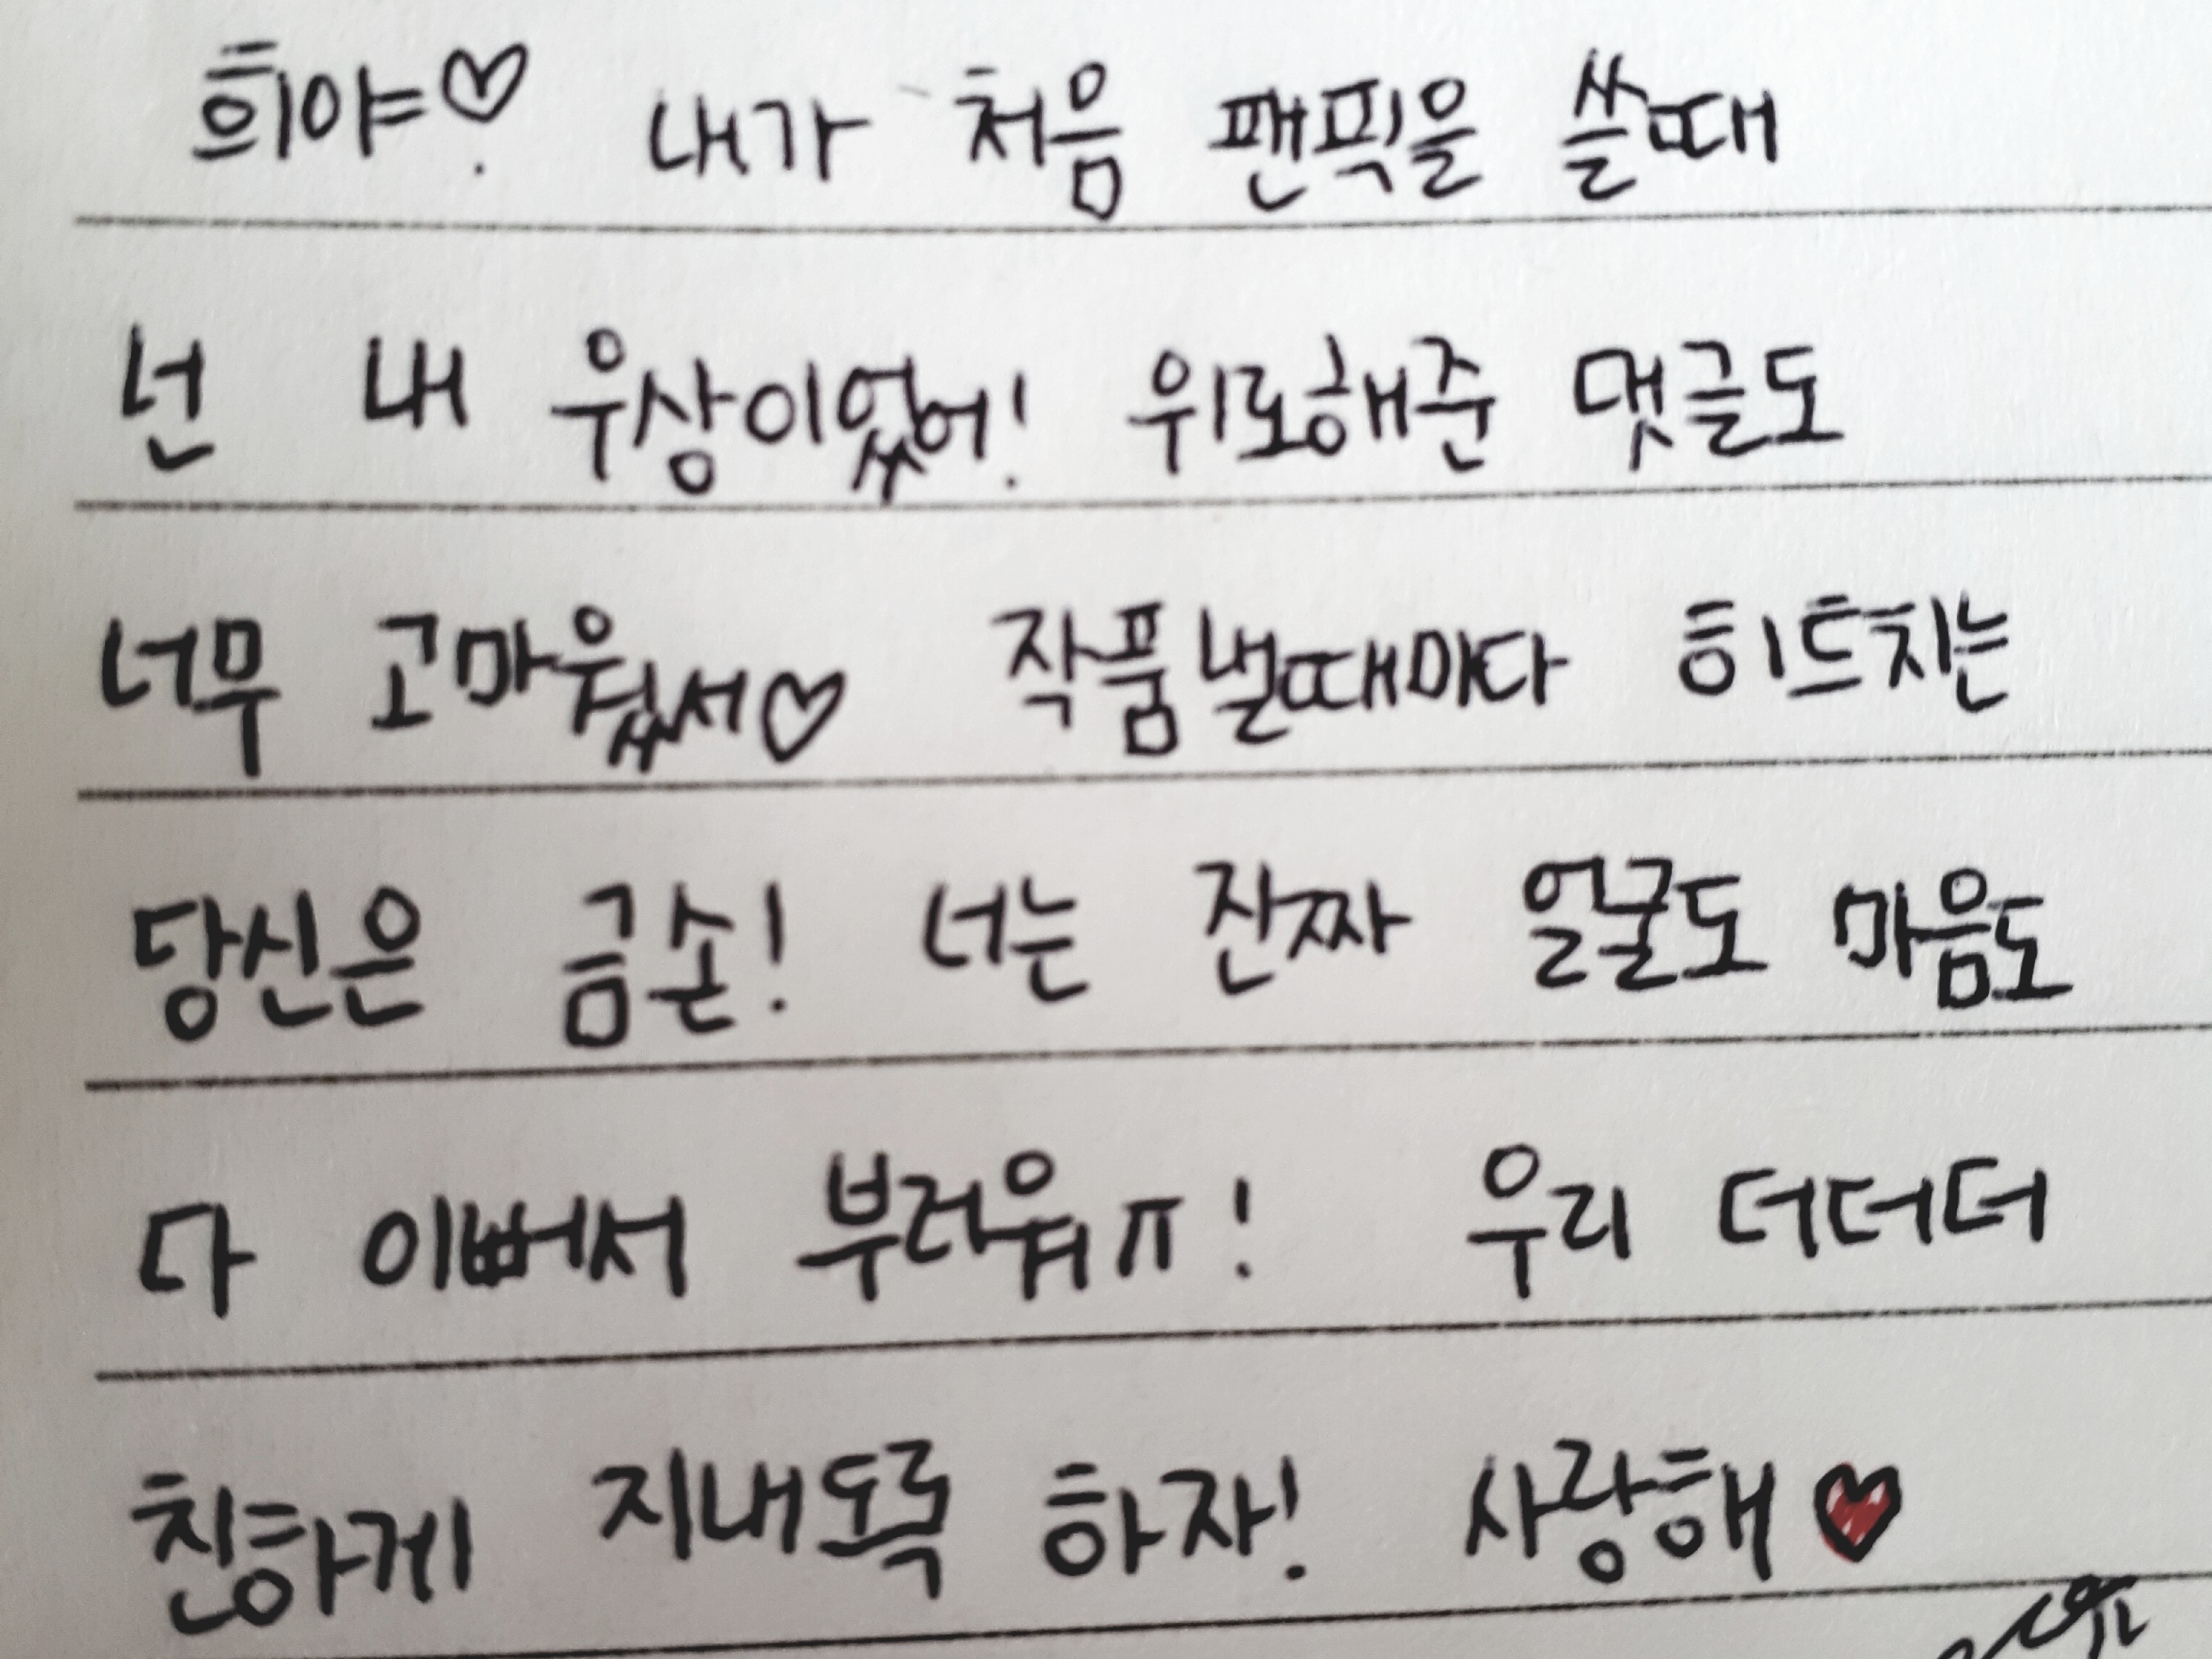 희야♡. 내가 처음 팬픽을 쓸때
넌 내 우상이었어! 위로해준 댓글도
너무 고마웠서♡ 작품낼때마다 히트치는
당신은 금손! 너는 진짜 얼굴도 마음도
다 이뻐서 부러워ㅠ! 우리 더더더
친하게 지내도록 하자! 사랑해♥